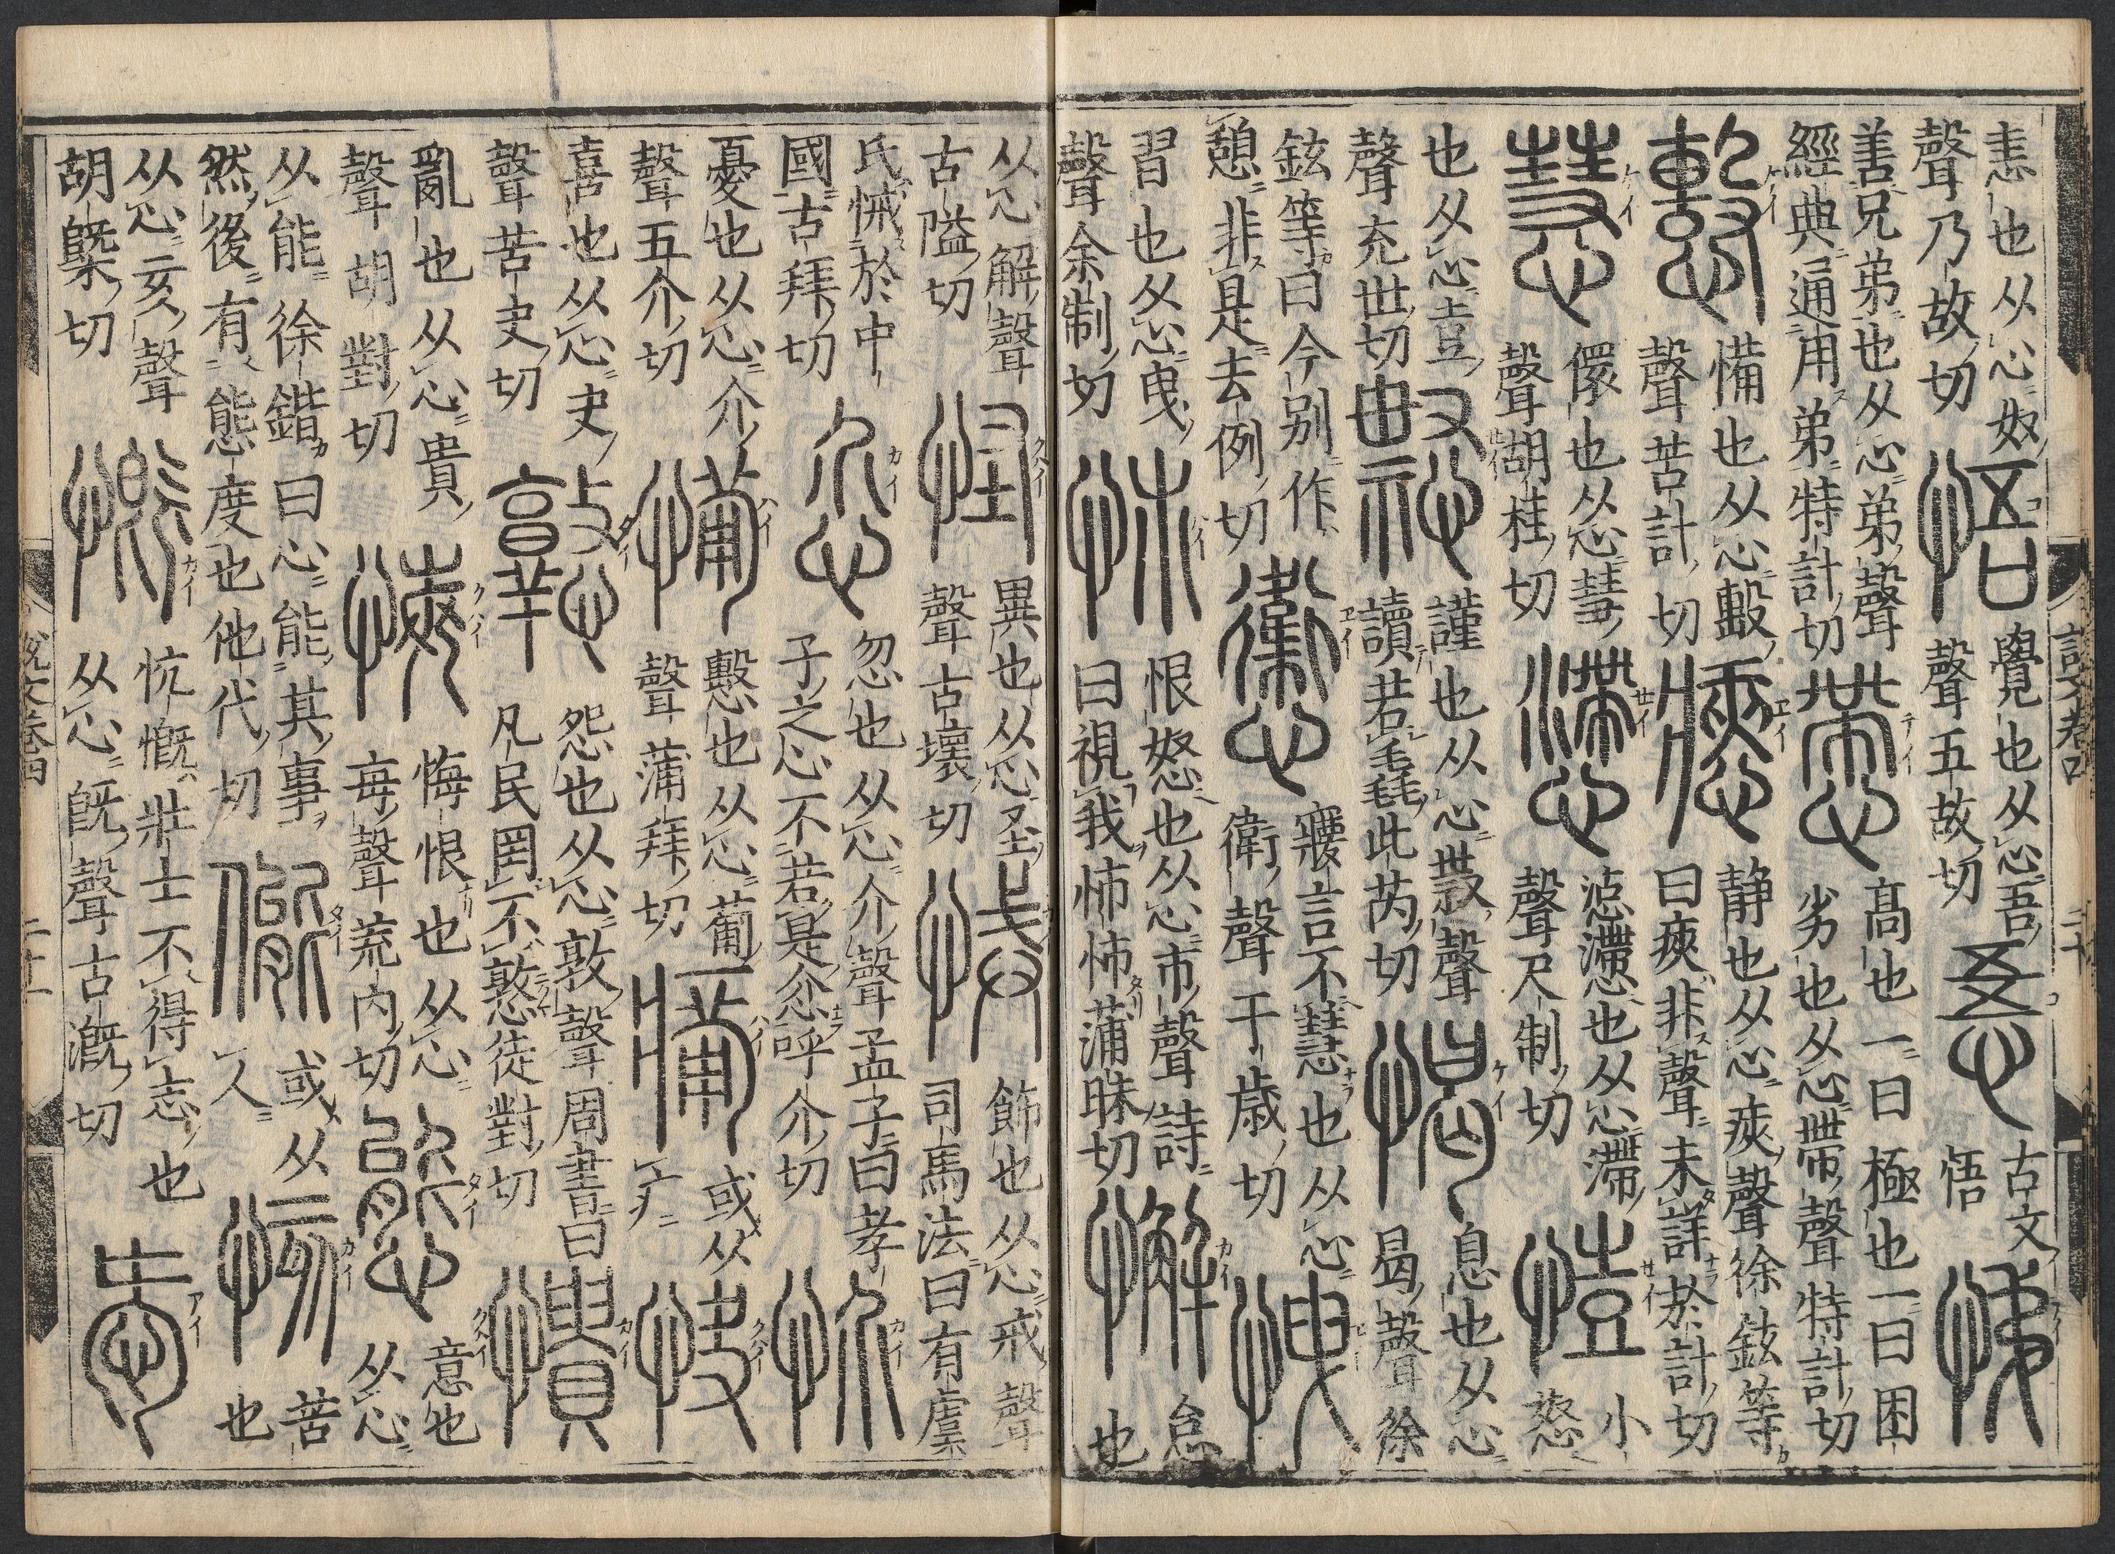 恚也从心奴
聲乃故切
悟
覺也从心吾
聲五故切
𢛯
古文
悟
悌
善兄弟也从心弟聲
經典通用弟特計切
㦅
髙也一曰極也一曰困
劣也从心帶聲特計切
憼
備也从心毄
聲苦計切
瘱
静也从心㾜聲徐鉉等
曰㾜非聲未詳於計切
慧
儇也从心彗
聲胡桂切
懘
㳲懘也从心滯
聲尺制切
小
怒
也从心壴
聲充世切
謹也从心㕞聲
讀若毳此芮切
愒
息也从心
曷聲徐
鉉等曰今别作
憩非是去例切
寱言不慧也从心
衛聲于歳切
㥴
習也从心曳
聲余制切
㤄
恨怒也从心巿聲詩
曰視我怖怖蒲昧切
懈
怠
也
説文卷四
二十
从心解聲
古隘切
怪
異也从心圣
聲古壞切
悈
飾也从心戒聲
司馬法曰有虞
氏悈於中
國古拜切
忽也从心介聲孟子曰孝
子之心不若是忿呼介切
忦
憂也从心介
聲五介切
𢞏
㥶也从心葡
聲蒲拜切
或从
疒
快
喜也从心夬
聲苦夬切
憝
怨也从心敦聲周書曰
凡民罔不憝徒對切
憒
亂也从心貴
聲胡對切
悔
悔恨也从心
每聲荒内切
態
意也
从心
从能徐鍇曰心能其事
然後有態度也他代切
㑷
或从
人
㤥
苦
也
从心亥聲
胡槩切
慨
忼慨壯士不得志也
从心旣聲古漑切
㤅
説文卷四
二十一